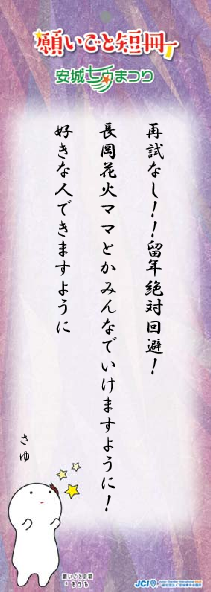 願いごと短冊
安城七夕まつり
再試なし！！留年絶対回避！
長岡花火ママとかみんなでいけますように！
好きな人できますように
さゆ
JCI